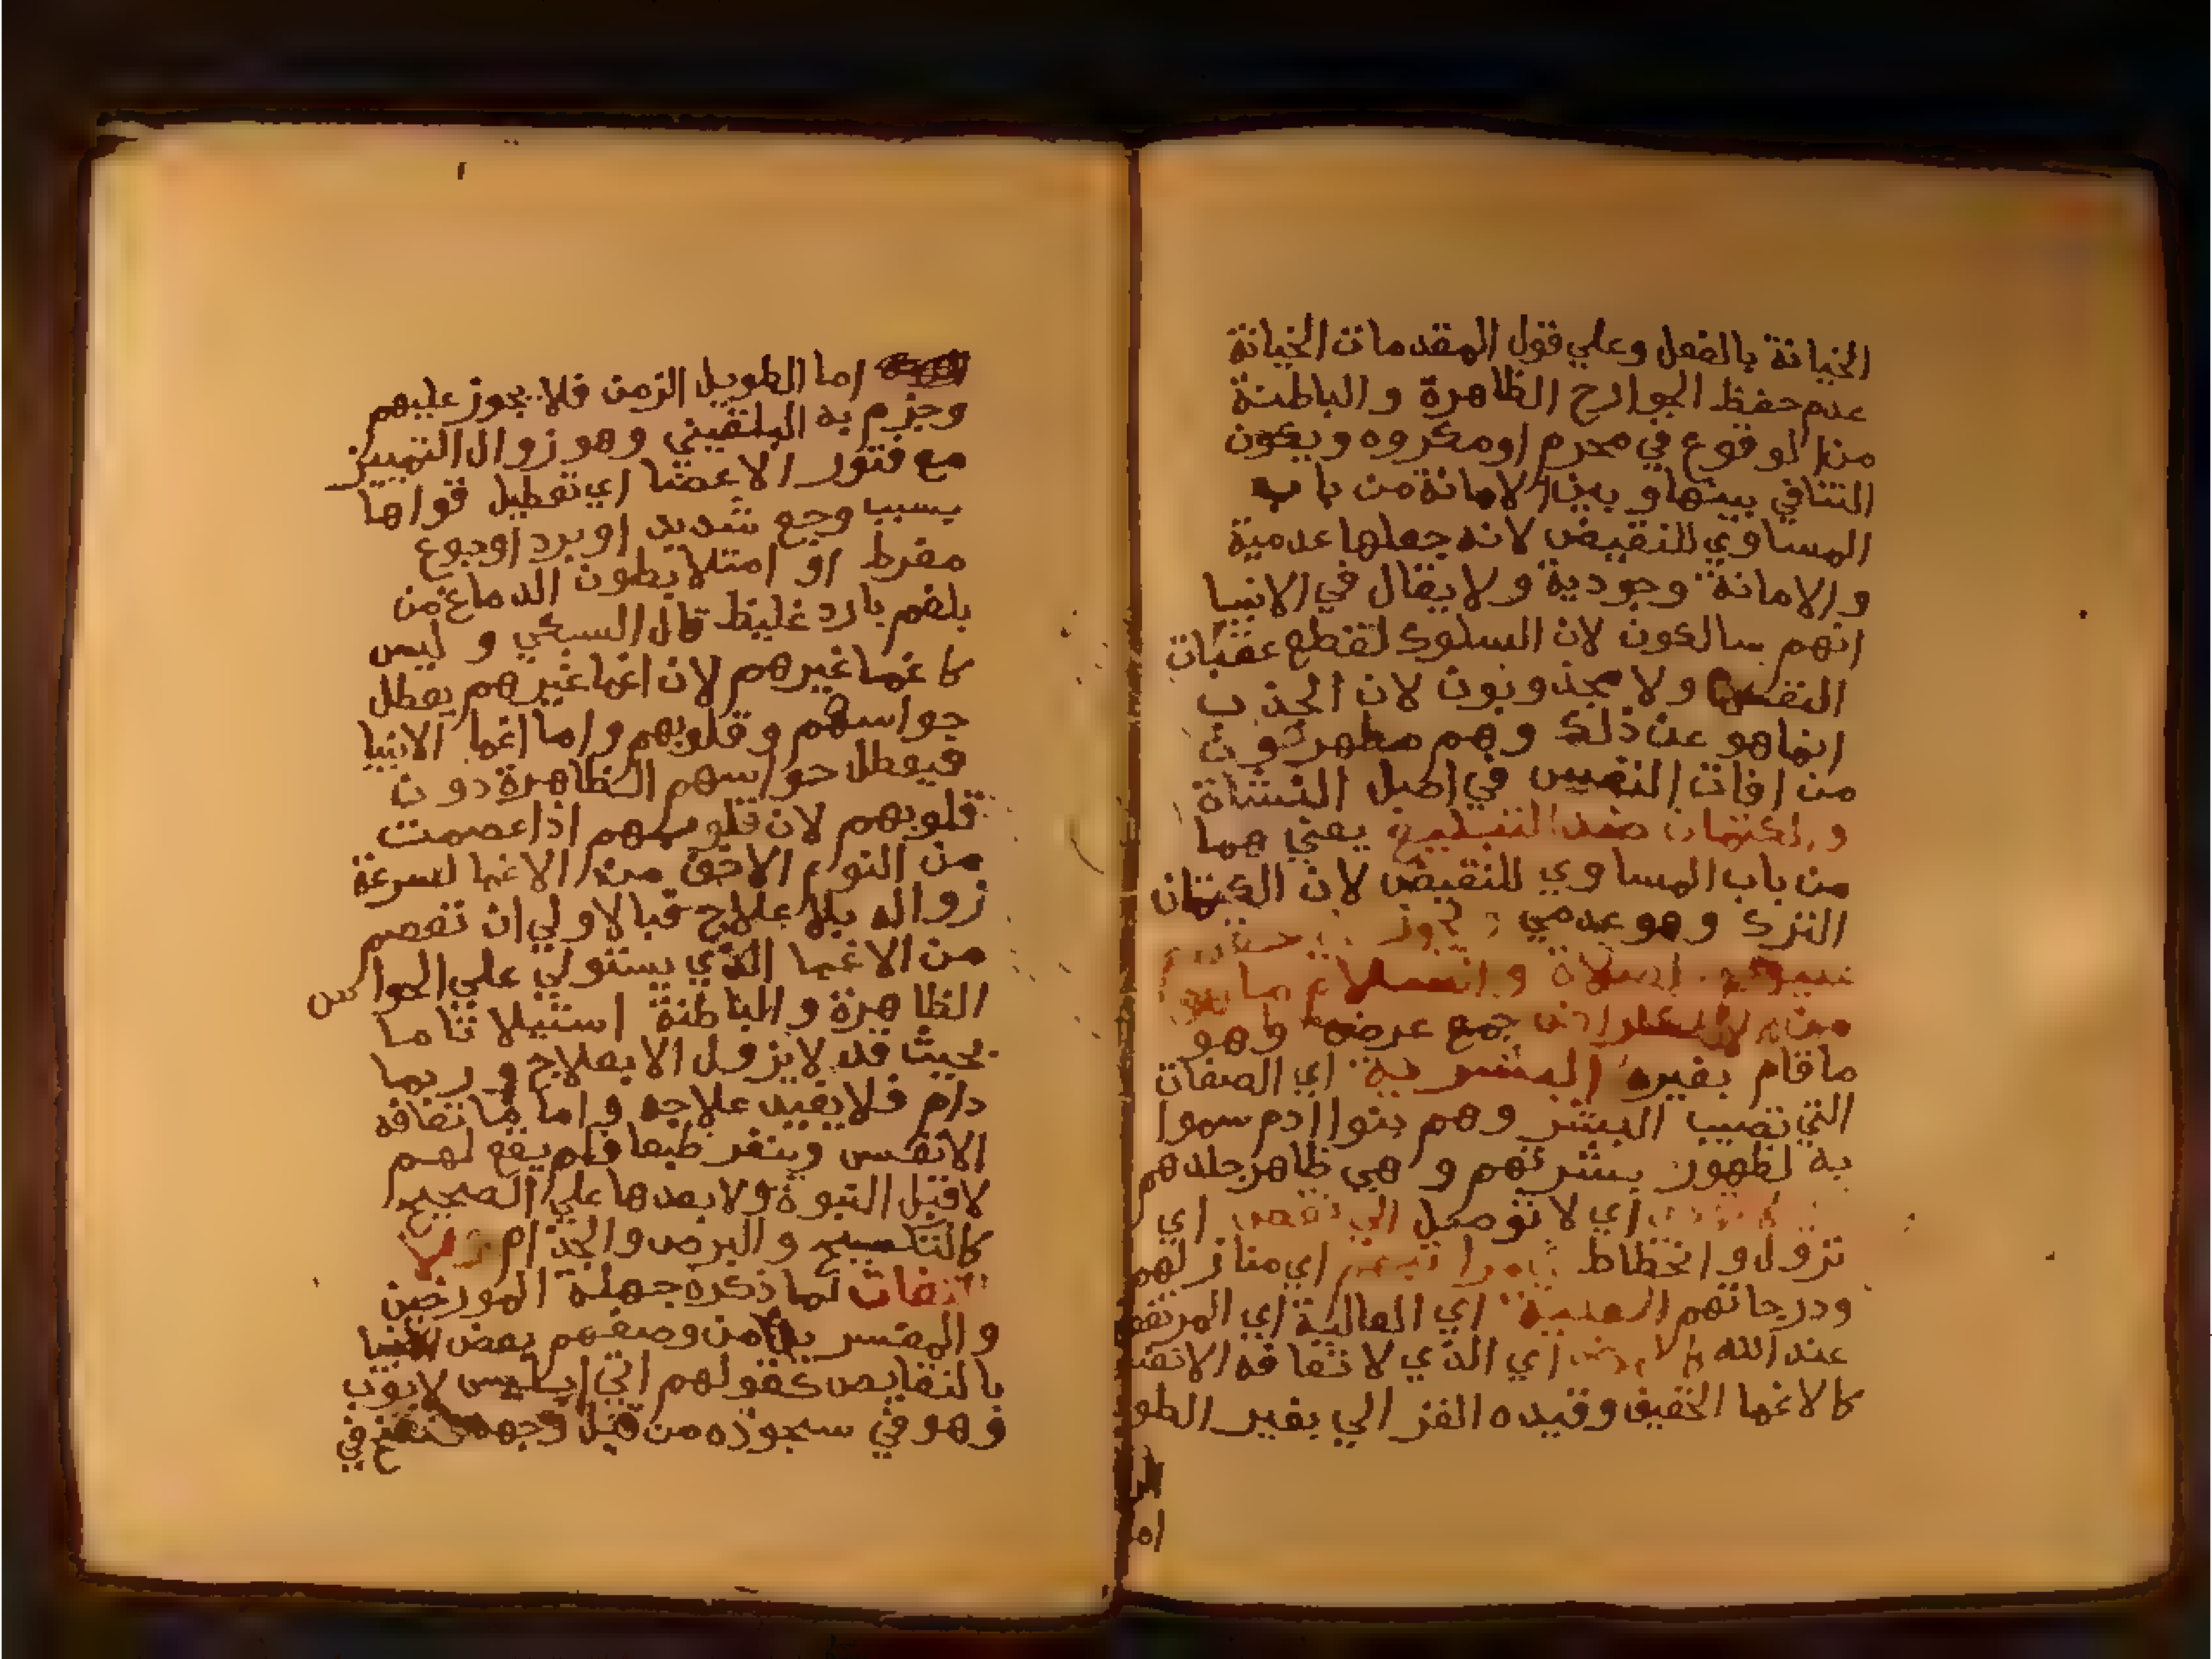 الخيانة بالفعل وعلي قول المقدمات الخيانة
عدم حفظ الجوارح الظاهرة والباطنة
من الوقوع في محرم او مكروه ويكون
التنافي بينها وبين الامانة من باب
المساوي للنقيض لانه جعلها عدمية
والامانة وجودية ولا يقال في الانبيا
انهم سالكون لان السلوك لقطع عقبات
النفس ولا مجذوبون لان الجذب
انما هو عن ذلك وهم مطهرون
من افات النفس في اصل النشاة
والكتمان ضد التبليغ يعني هما
من باب المساوي للنقيض لان الكتمان
الترك وهو عدمي
عليهم الصلاة والسلام ما
من الاعراض جمع عرض وهو
ما قام بغيره البشرية اي الصفات
التي تصيب البشر وهم بنوا ادم سموا
به لظهور بشرتهم وهي ظاهر جلدهم
لا تودي اي لا توصل الي نقص اي
نزول وانحطاط في مراتبهم اي منازلهم
ودرجاتهم العلية اي العالية اي المرتفعة
عند الله اي الذي لا تعافه الانفس
كالاغما الخفيف وقيده الغزالي بغير الطو
اما
اما الطويل الزمن فلا يجوز عليهم
وجزم به البلقيني وهو زوال التمييز
مع فتور الاعضا اي تعطيل قواها
بسبب وجع شديد او برد اوجوع
مفرط او امتلا بطون الدماغ من
بلغم بارد غليظ قال السبكي وليس
كاغما غيرهم لان اغما غيرهم يعطل
حواسهم وقلوبهم واما اغما الانبيا
فيعطل حواسهم الظاهرة دون
قلوبهم لان قلوبهم اذا عصمت
من النوم الاخف من الاغما لسرعة
زواله بلا علاج فبالاولي ان تعصم
من الاغما الذي يستولي علي الحواس
الظاهرة والباطنة استيلا تاما
بحيث قد لا يزول الا بعلاج وربما
دام فلا يفيد علاجه واما ما تعافه
الانفس وينفر طبعا فلم يقع لهم
لا قبل النبوة ولا بعدها علي الصحيح
كالتكسيح والبرص والجذام ولا
التفات لما ذكره جهلة المورخين
والمفسرين من وصفهم بعض الانبيا
بالنقايص كقولهم اتي ابليس لايوب
وهو في سجوده من قبل وجهه فنفخ في